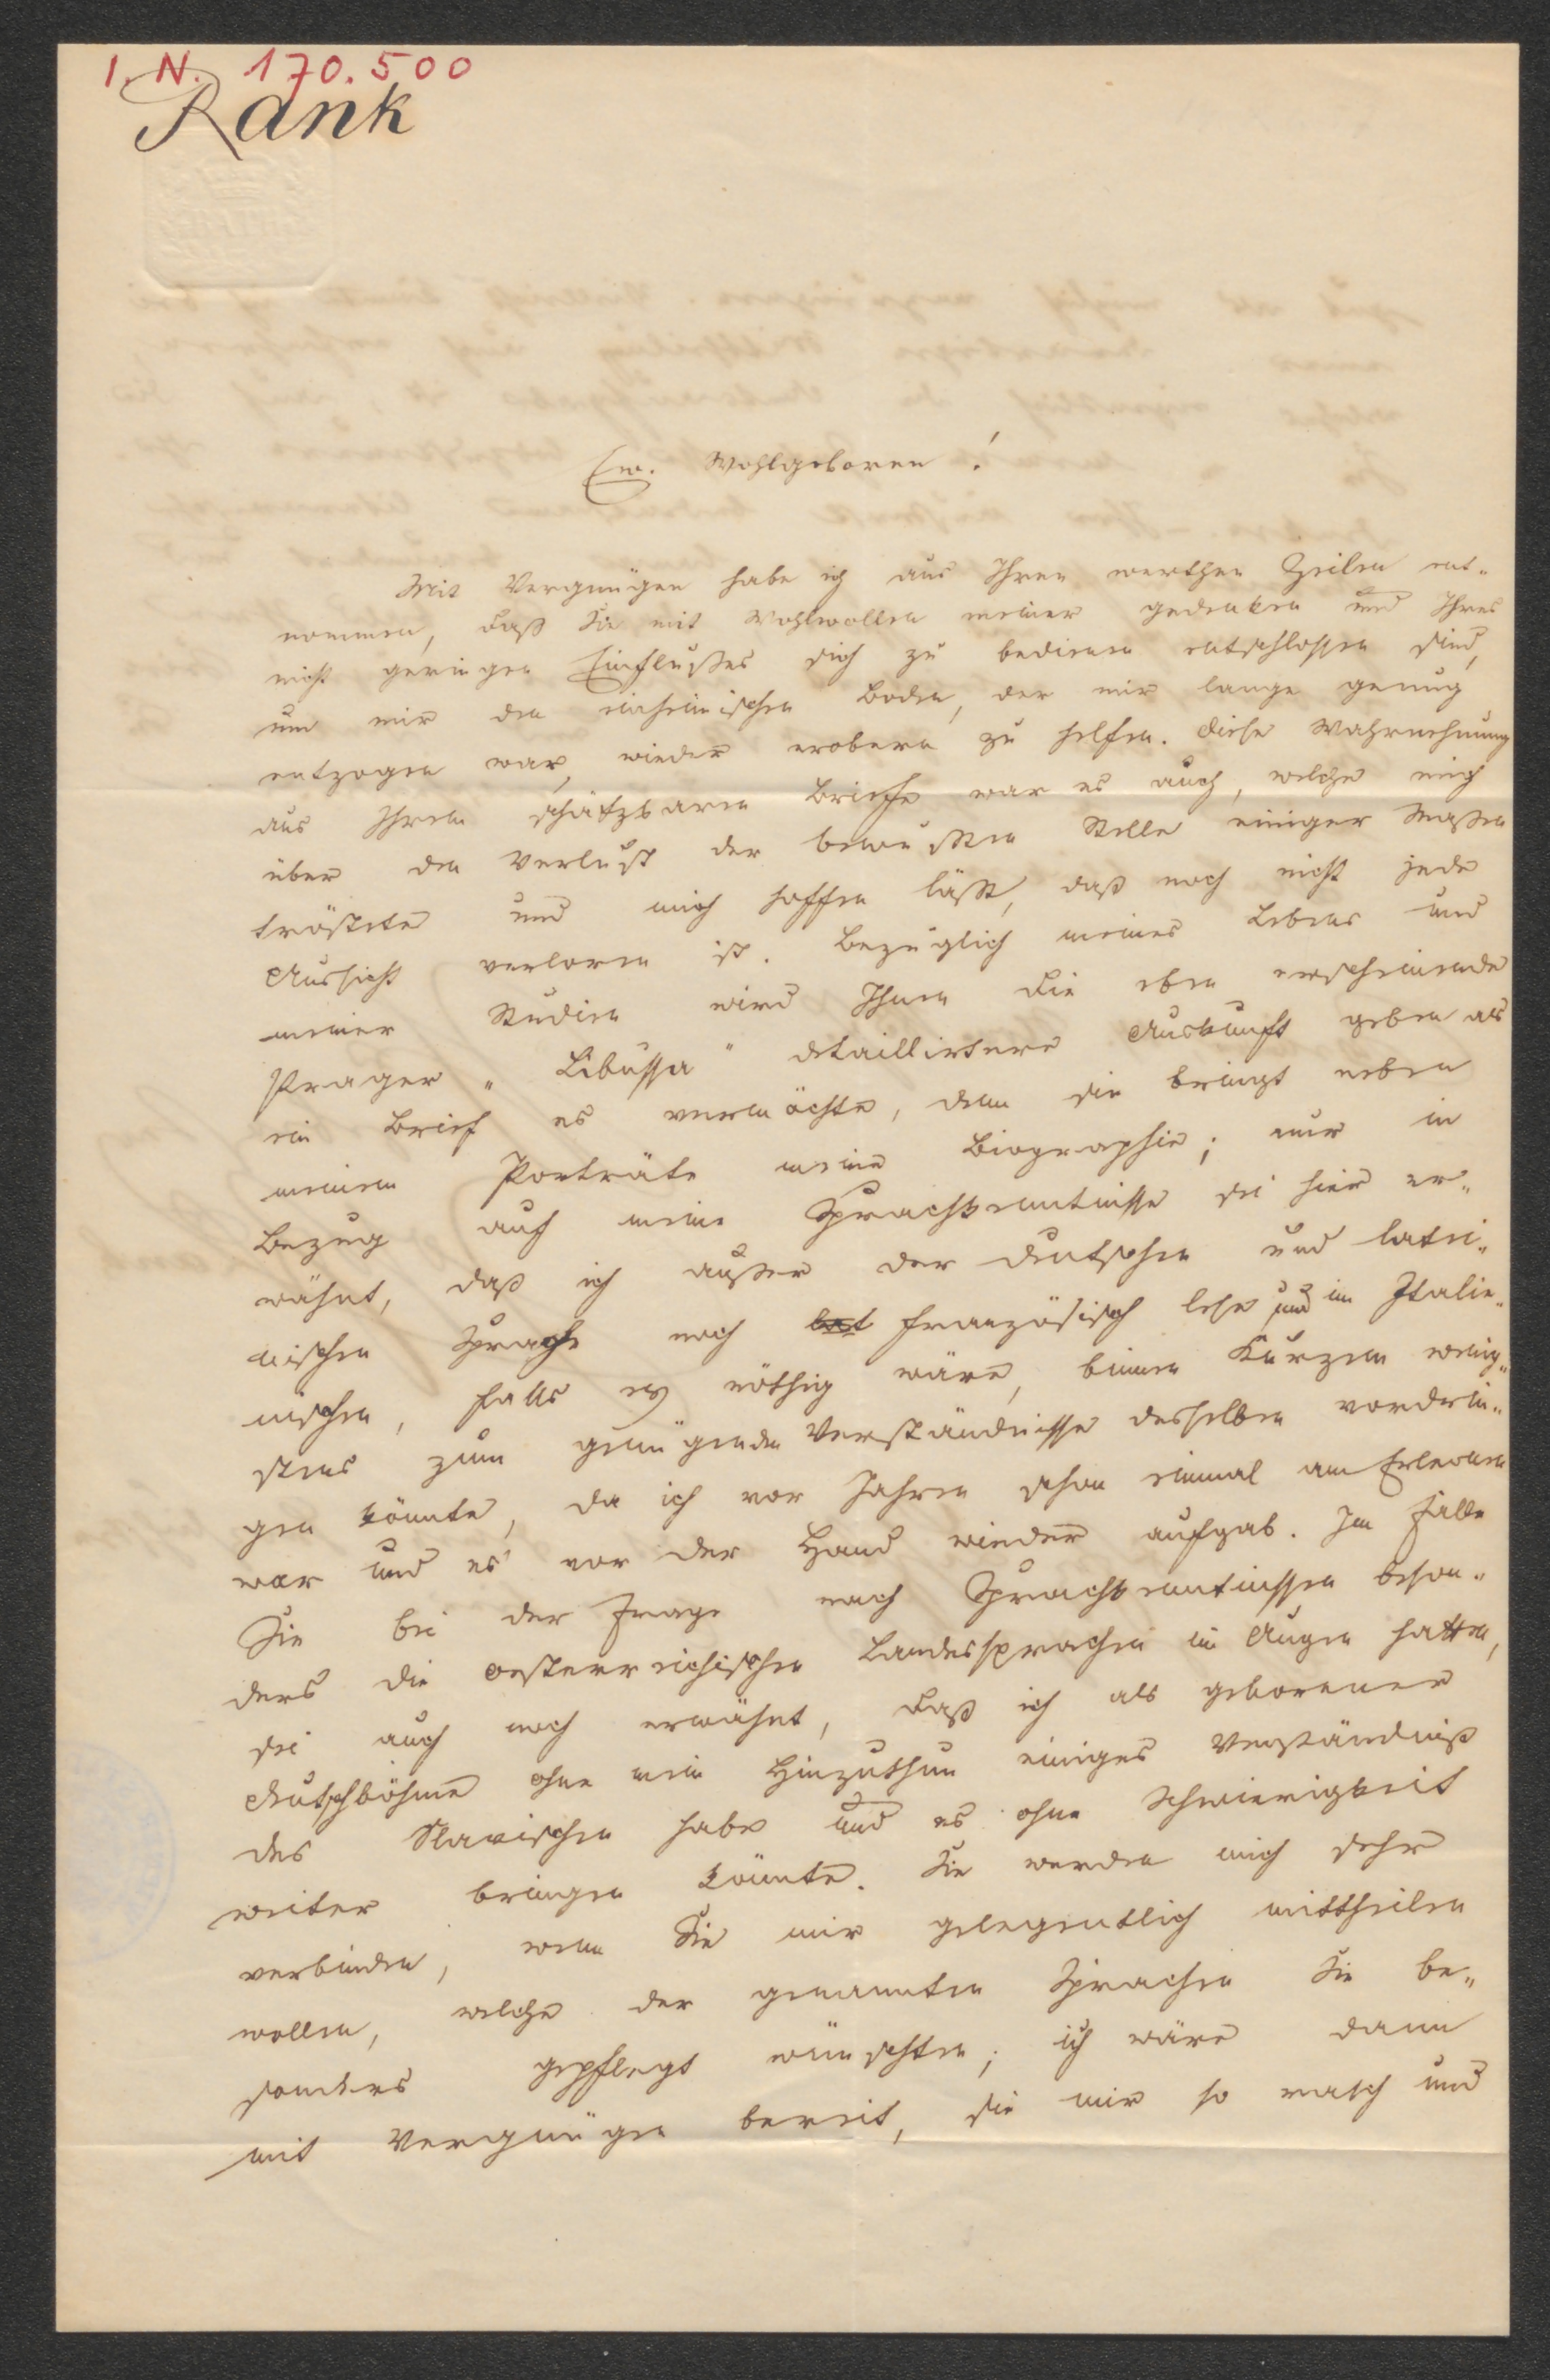 I. N. 170.500
Rank
Ew. Wohlgeboren!
Mit Vergnügen habe ich aus Ihren werthen Zeilen ent-
nommen, daß Sie mit Wohlwollen meiner gedenken und Ihres
nicht geringen Einflußes sich zu bedienen entschlossen sind,
um mir den einheimischen Boden, der mir lange genug
entzogen war, wieder erobern zu helfen. Diese Wahrnehmung
aus Ihrem schätzbaren Briefe war es auch, welche mich
über den Verlust der bewußten Stelle einiger Maßen
tröstete und mich hoffen läßt, daß noch nicht jede
Aussicht verloren ist. Bezüglich meines Lebens und
meiner Studien wird Ihnen die eben erscheinende
Prager „Libussa" detaillirtere Auskunft geben als
ein Brief es vermöchte, denn sie bringt neben
meinem Porträte meine Biographie; nur in
Bezug auf meine Sprachkenntnisse sei hier er-
wähnt, daß ich außer der deutschen und latei-
nischen Sprache noch lat französisch lese und im Italie-
nischen, falls es nöthig wäre, binnen Kurzem wenig-
stens zum genügenden Verständnisse desselben vordrin-
gen könnte, da ich vor Jahren schon einmal am Erlernen
war und es vor der Hand wieder aufgab. Im Falle
Sie bei der Frage nach Sprachkenntnissen beson-
ders die oesterreichischen Landessprachen im Auge hatten,
sei auch noch erwähnt, daß ich als geborener
Deutschböhme ohne mein Hinzuthun einiges Verständniß
des Slavischen habe und es ohne Schwierigkeit
weiter bringen könnte. Sie werden mich sehr
verbinden, wenn Sie mir gelegentlich mittheilen
wollen, welche der genannten Sprachen Sie be-
sonders gepflegt wünschten; ich wäre dann
mit Vergnügen bereit, sie mir so rasch und